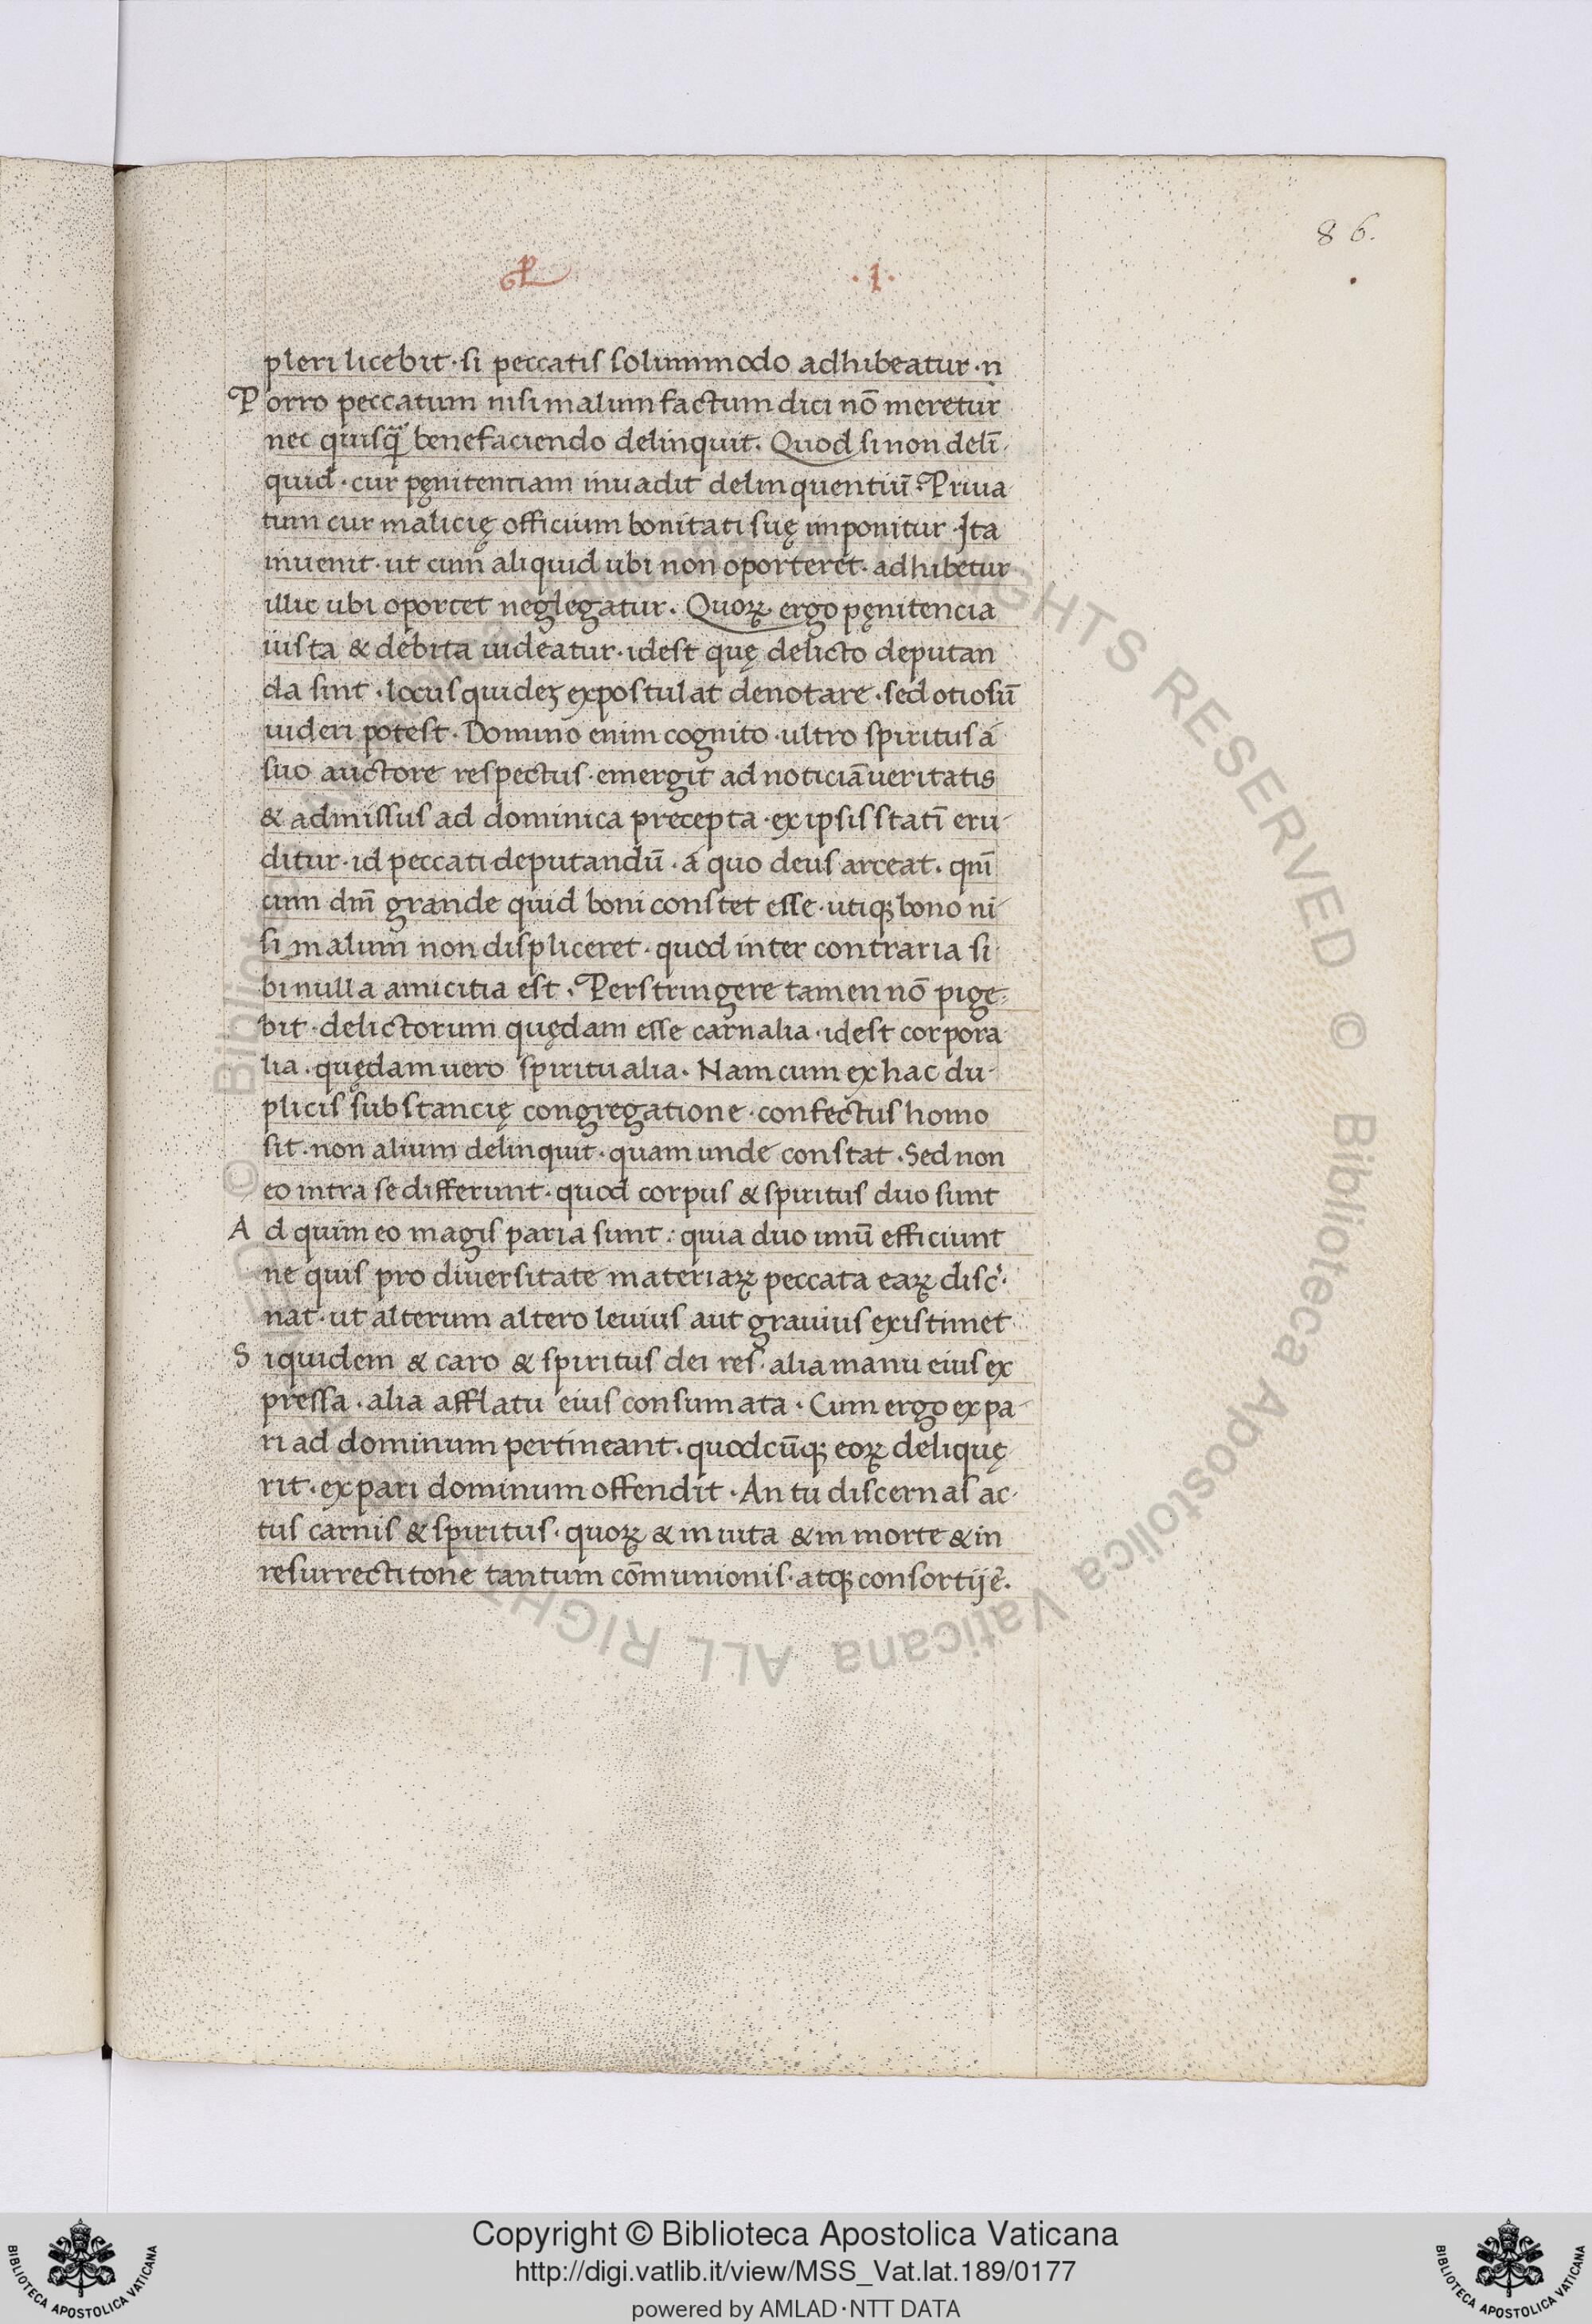 86.
·I·
pleri licebit · si peccatis solummodo adhibeatur · n
Porro peccatum nisi malum factum dici nō meretur
nec quisq̄ benefaciendo delinquit. Quod si non delī-
quid · cur pęnitentiam inuadit delinquentiū · Priua
tum cur malicię officium bonitati suę imponitur · Ita
inuenit · ut cum aliquid ubi non oporteret · adhibetur
illic ubi oportet neglegatur. Quoꝝ · ergo pęnitencia
iusta & debita uideatur · idest quę delicto deputan
da sint · locus quideʒ expostulat denotare · sed otiosū
uideri potest · Domino enim cognito · ultro spiritus á
suo auctore respectus · emergit ad noticiā ueritatis
& admissus ad dominica precepta · ex ipsis statī eru-
ditur · id peccati deputandū · á quo deus arceat. qm̄
cum dm̄ grande quid boni constet esse · utiqꝫ bono ni-
si malum non displiceret · quod inter contraria si
bi nulla amicitia est. Perstringere tamen nō pige-
bit · delictorum quędam esse carnalia · idest corpora
lia. quędam uero spiritualia. Nam cum ex hac du-
plicis substancię congregatione · confectus homo
sit · non alium delinquit · quam unde constat. Sed non
eo intra se differunt · quod corpus & spiritus duo sunt
Ad quim eo magis paria sunt : quia duo unū efficiunt
ne quis pro diuersitate materiaꝝ peccata eaꝝ disc̓-
nat · ut alterum altero leuius aut grauius existimet
Siquidem & caro & spiritus dei res · alia manu eius ex
pressa · alia afflatu eius consumata · Cum ergo ex pa-
ri ad dominum pertineant · quodcūqꝫ eoꝝ deliquę
rit · ex pari dominum offendit · An tu discernas ac-
tus carnis & spiritus · quoꝝ & in uita & in morte & in
resurrectitone tantum cōmunionis · atqꝫ consortij ē.
© Biblioteca Apostolica Vaticana ALL RIGHTS RESERVED
Copyright © Biblioteca Apostolica Vaticana
http://digi.vatlib.it/view/MSS_Vat.lat.189/0177
powered by AMLAD·NTT DATA
BIBLIOTECA APOSTOLICA VATICANA
BIBLIOTECA APOSTOLICA VATICANA